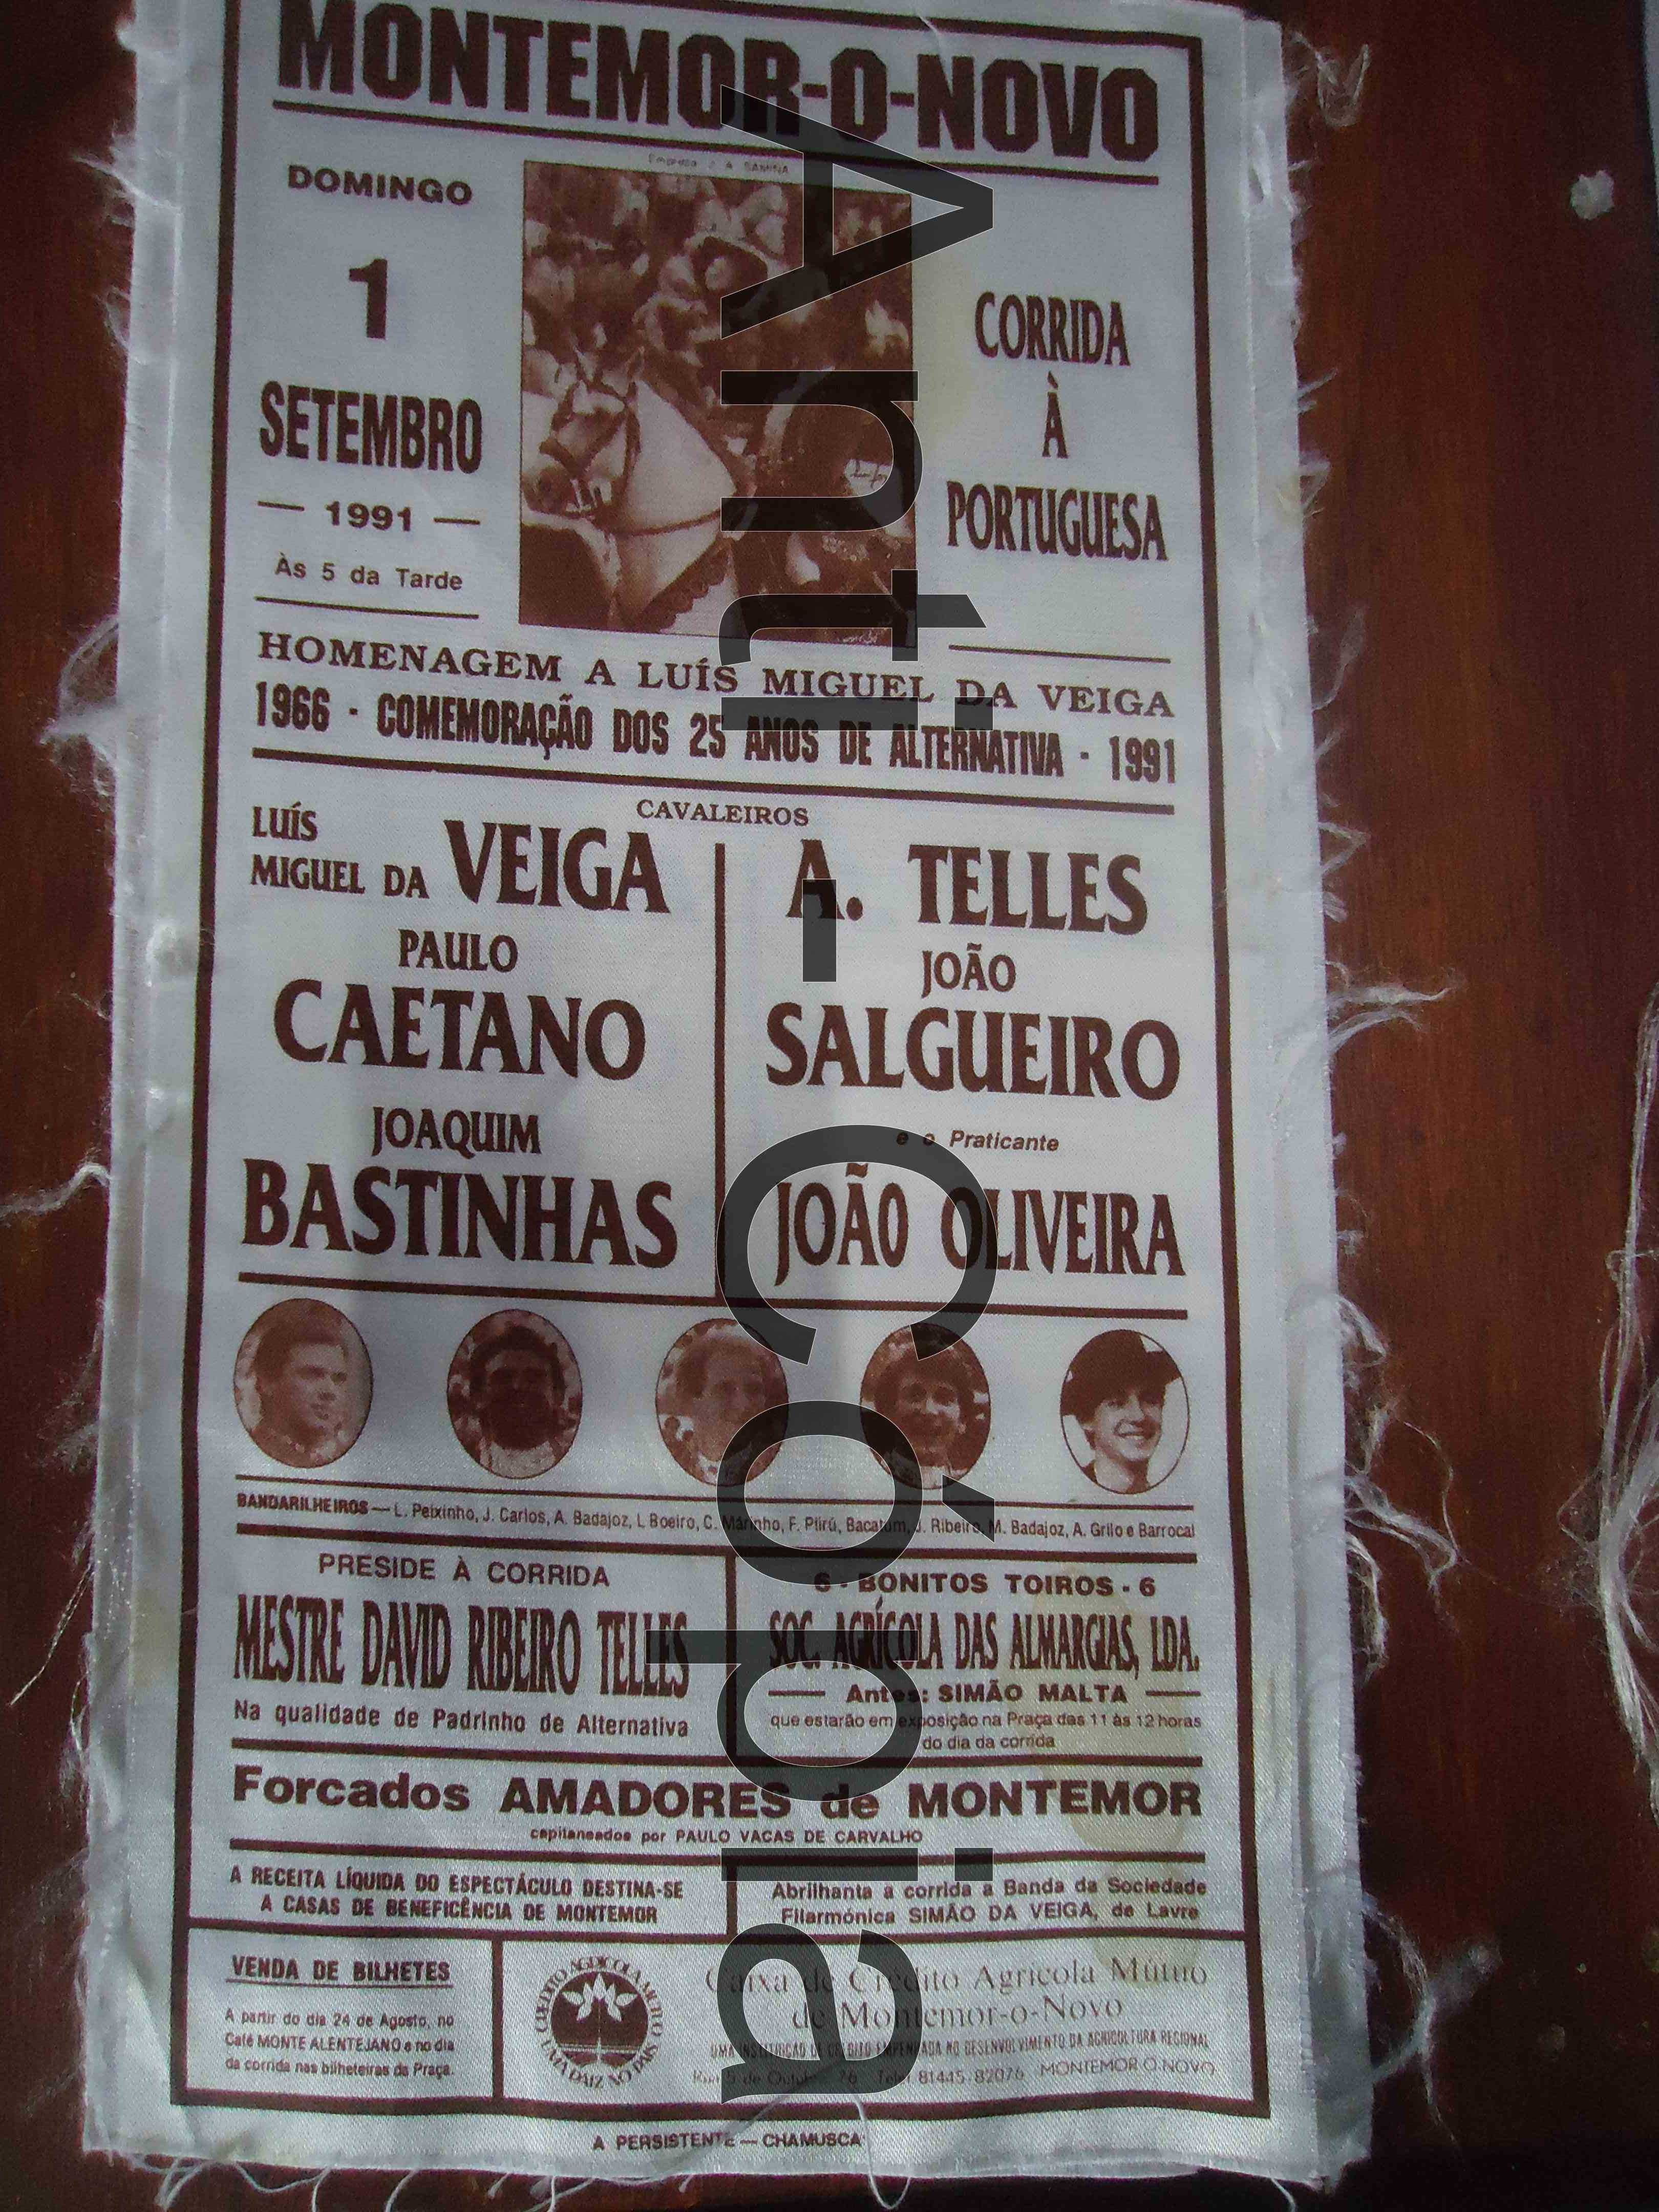 MONTEMOR-O-NOVO
DOMINGO
1
SETEMBRO
— 1991 —
Às 5 da Tarde
CORRIDA
À
PORTUGUESA
HOMENAGEM A LUÍS MIGUEL DA VEIGA
1966 - COMEMORAÇÃO DOS 25 ANOS DE ALTERNATIVA - 1991
CAVALEIROS
LUÍS
MIGUEL DA VEIGA
PAULO
CAETANO
JOAQUIM
BASTINHAS
A. TELLES
JOÃO
SALGUEIRO
e o Praticante
JOÃO OLIVEIRA
BANDARILHEIROS — L. Peixinho, J. Carlos, A. Badajoz, L. Boeiro, C. Marinho, F. Pirú, Bacatum, J. Ribeiro, M. Badajoz, A. Grilo e Barrocal
PRESIDE À CORRIDA
MESTRE DAVID RIBEIRO TELLES
Na qualidade de Padrinho de Alternativa
6 - BONITOS TOIROS - 6
SOC. AGRÍCOLA DAS ALMARGIAS, LDA.
— Antes: SIMÃO MALTA —
que estarão em exposição na Praça das 11 às 12 horas
do dia da corrida
Forcados AMADORES de MONTEMOR
capitaneados por PAULO VACAS DE CARVALHO
A RECEITA LÍQUIDA DO ESPECTÁCULO DESTINA-SE
A CASAS DE BENEFICÊNCIA DE MONTEMOR
Abrilhanta a corrida a Banda da Sociedade
Filarmónica SIMÃO DA VEIGA, de Lavre
VENDA DE BILHETES
A partir do dia 24 de Agosto, no
Café MONTE ALENTEJANO e no dia
da corrida nas bilheteiras da Praça.
CREDITO AGRICOLA MUTUO
UMA RAIZ NO PAIS
Caixa de Crédito Agrícola Mútuo
de Montemor-o-Novo
UMA INSTITUIÇÃO DE CRÉDITO EMPENHADA NO DESENVOLVIMENTO DA AGRICULTURA REGIONAL
Rua 5 de Outubro, 76 Telef. 81445-82076 MONTEMOR-O-NOVO
A PERSISTENTE — CHAMUSCA
Anti-Cópia